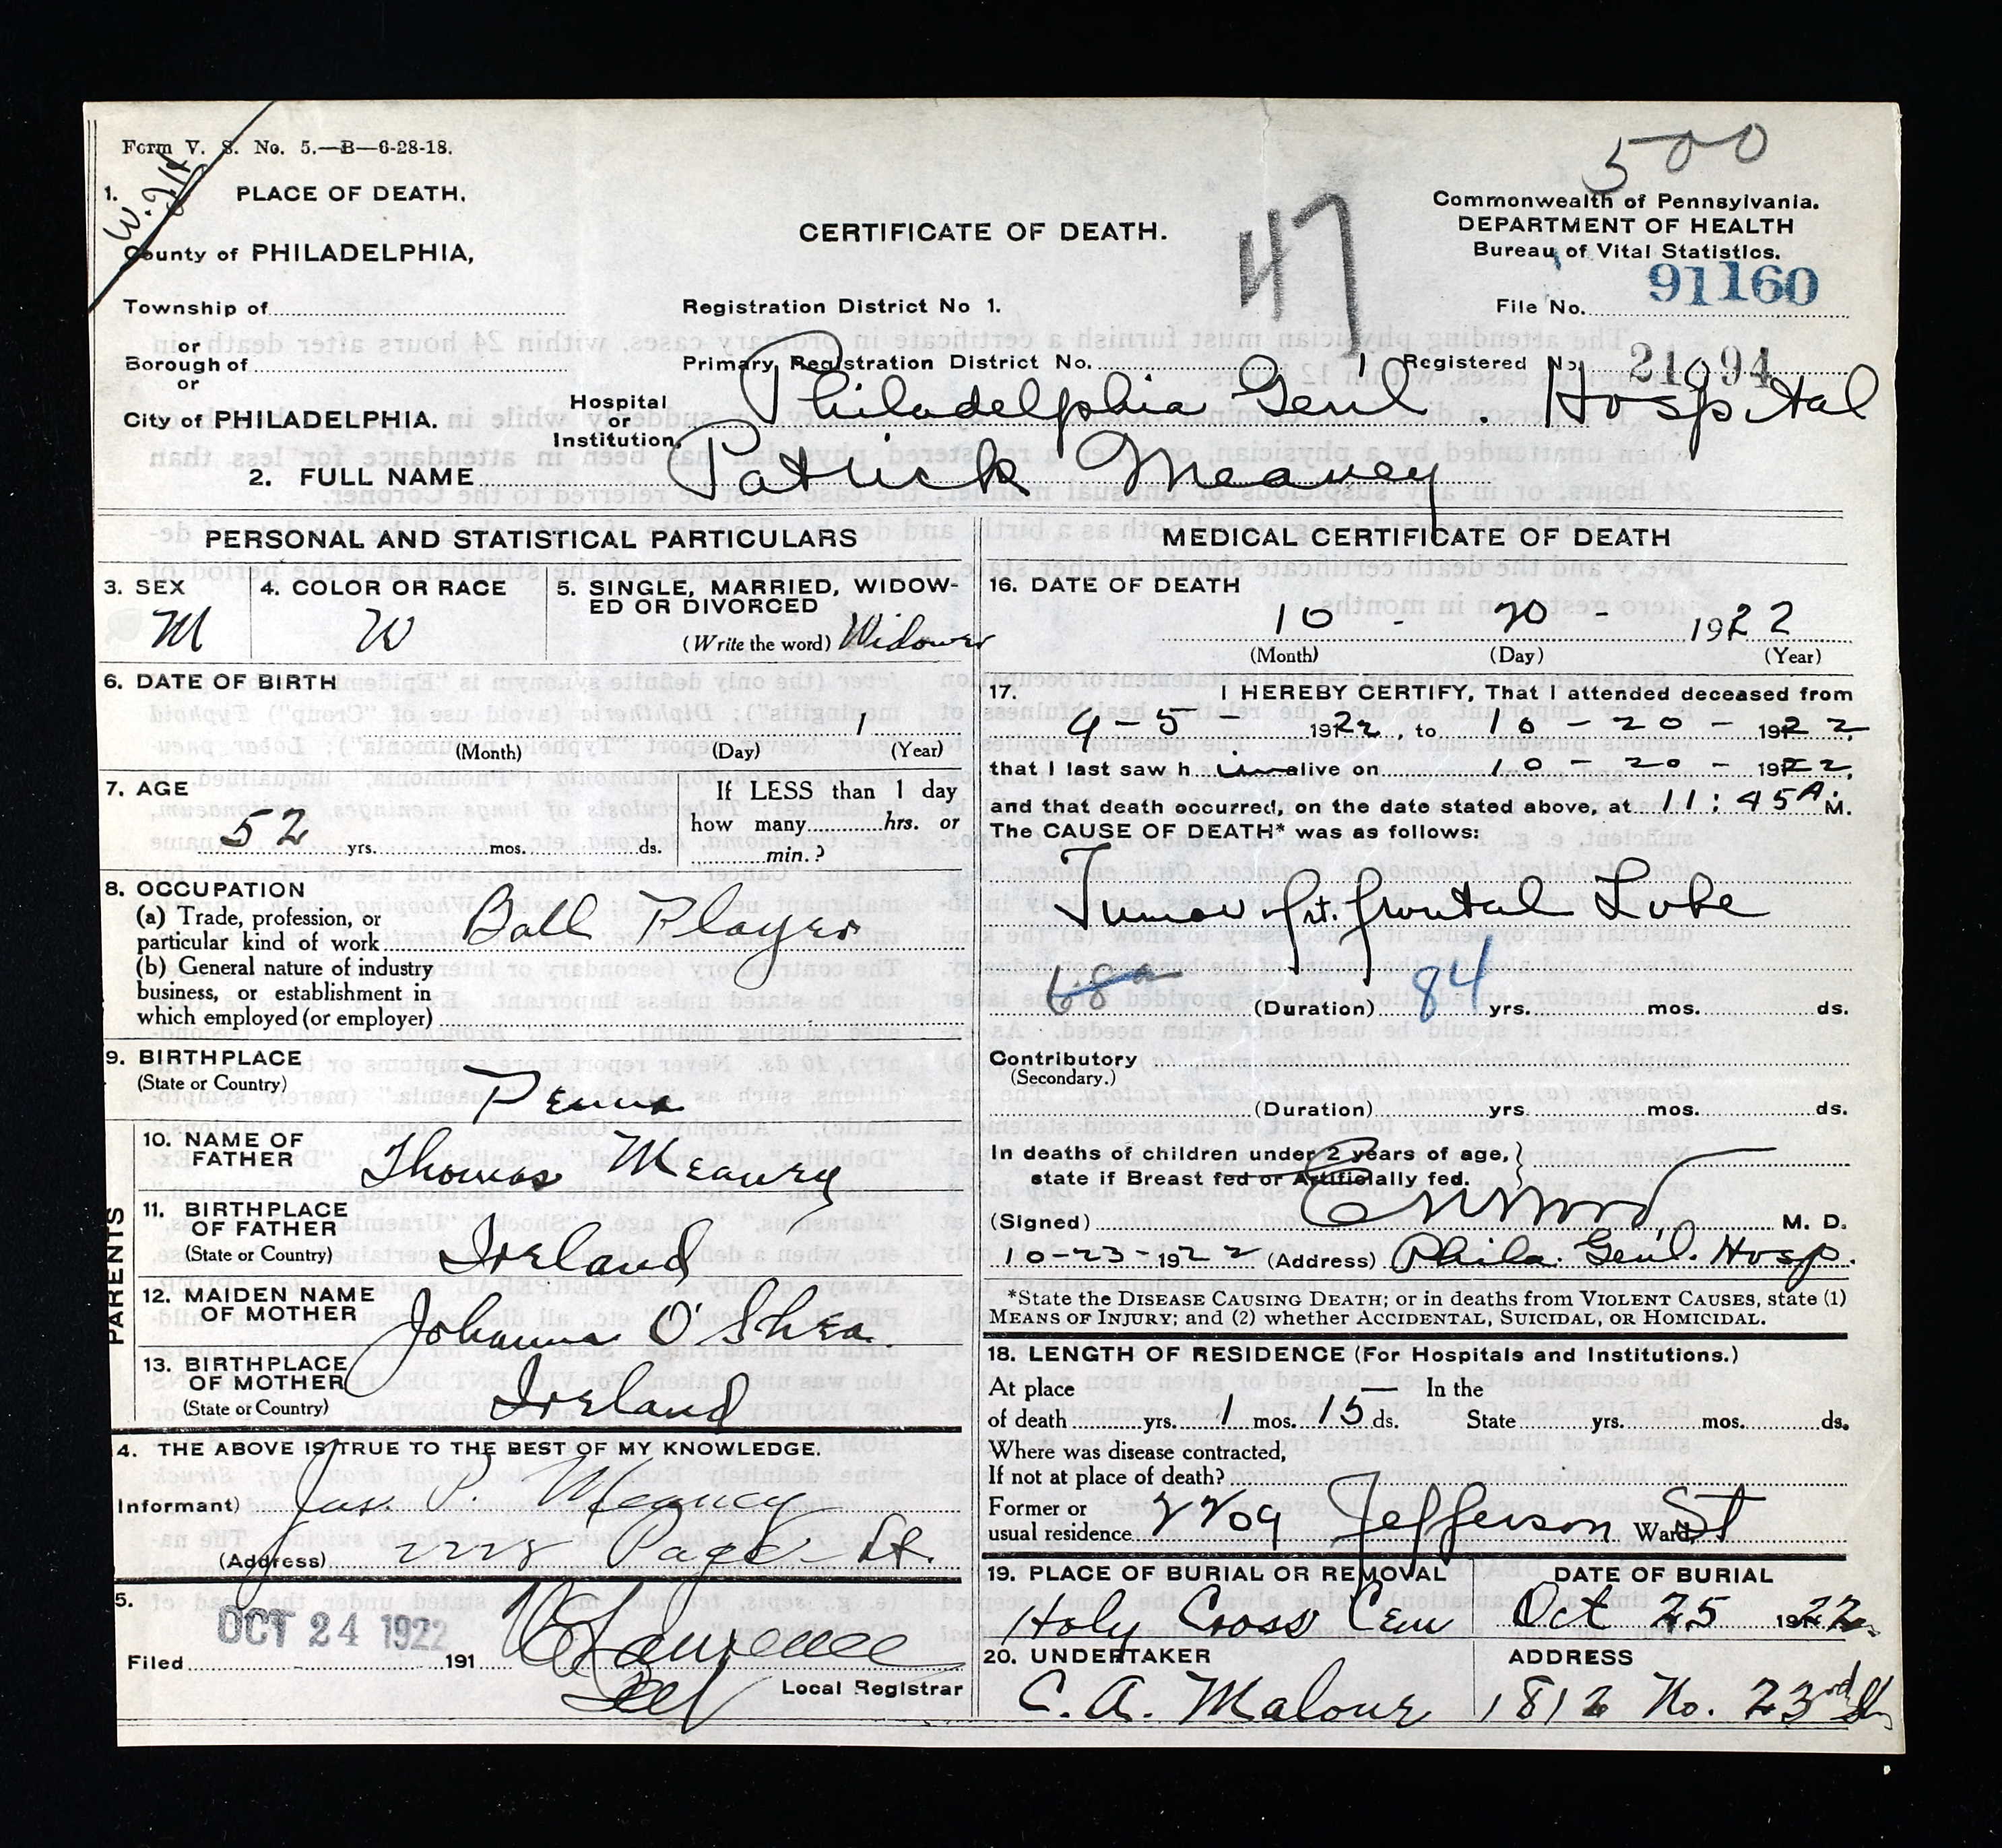 Form V. S. No. 5.—B—6-28-18.
500
1. PLACE OF DEATH.
W.
County of PHILADELPHIA,
CERTIFICATE OF DEATH.
47
Commonwealth of Pennsylvania.
DEPARTMENT OF HEALTH
Bureau of Vital Statistics.
File No. 91160
Township of
Registration District No 1.
or
Borough of
Primary Registration District No.
Registered No. 21094
or
City of PHILADELPHIA.
Hospital or Institution, Philadelphia Genl. Hospital
2. FULL NAME Patrick Meaney
PERSONAL AND STATISTICAL PARTICULARS
3. SEX M
4. COLOR OR RACE W
5. SINGLE, MARRIED, WIDOW-
ED OR DIVORCED
(Write the word) Widower
6. DATE OF BIRTH
1
(Month) (Day) (Year)
7. AGE
52 yrs. mos. ds.
If LESS than 1 day
how many hrs. or
min.?
8. OCCUPATION
(a) Trade, profession, or
particular kind of work Ball Player
(b) General nature of industry
business, or establishment in
which employed (or employer)
9. BIRTHPLACE
(State or Country)
Penna
PARENTS
10. NAME OF
FATHER Thomas Meaney
11. BIRTHPLACE
OF FATHER
(State or Country) Ireland
12. MAIDEN NAME
OF MOTHER Johanna O'Shea
13. BIRTHPLACE
OF MOTHER
(State or Country) Ireland
4. THE ABOVE IS TRUE TO THE BEST OF MY KNOWLEDGE.
Informant) Jas. P. Meaney
(Address) 2228 Page St.
5.
OCT 24 1922
Filed 191
Local Registrar
MEDICAL CERTIFICATE OF DEATH
16. DATE OF DEATH
10 - 20 - 1922
(Month) (Day) (Year)
17. I HEREBY CERTIFY, That I attended deceased from
9-5- 1922, to 10-20- 1922,
that I last saw h im alive on 10-20- 1922,
and that death occurred, on the date stated above, at 11:45 A. M.
The CAUSE OF DEATH* was as follows:
Tumor of rt. frontal Lobe
68a
84
(Duration) yrs. mos. ds.
Contributory
(Secondary.)
(Duration) yrs. mos. ds.
In deaths of children under 2 years of age,}
state if Breast fed or Artificially fed.
(Signed) M. D.
10-23-1922 (Address) Phila. Gen'l. Hosp.
*State the DISEASE CAUSING DEATH; or in deaths from VIOLENT CAUSES, state (1)
MEANS OF INJURY; and (2) whether ACCIDENTAL, SUICIDAL, OR HOMICIDAL.
18. LENGTH OF RESIDENCE (For Hospitals and Institutions.)
At place In the
of death yrs. 1 mos. 15 ds. State yrs. mos. ds.
Where was disease contracted,
If not at place of death?
Former or
usual residence 2209 Jefferson St Ward,
19. PLACE OF BURIAL OR REMOVAL
Holy Cross Cem
DATE OF BURIAL
Oct 25 1922
20. UNDERTAKER
C. A. Malone
ADDRESS
1812 No. 23rd St